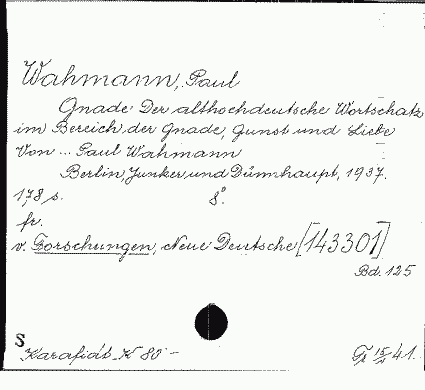 Wahmann, Paul
Gnade. Der althochdeutsche Wortschatz
im Bereich der Gnade, Gunst und Liebe
Von ... Paul Wahmann
Berlin, Junker und Dünnhaupt, 1937.
178 s. 8°
fr.
v. Forschungen, Neue Deutsche [143301]
Bd. 125
S
Karafiát K 80 -
15/4 41.